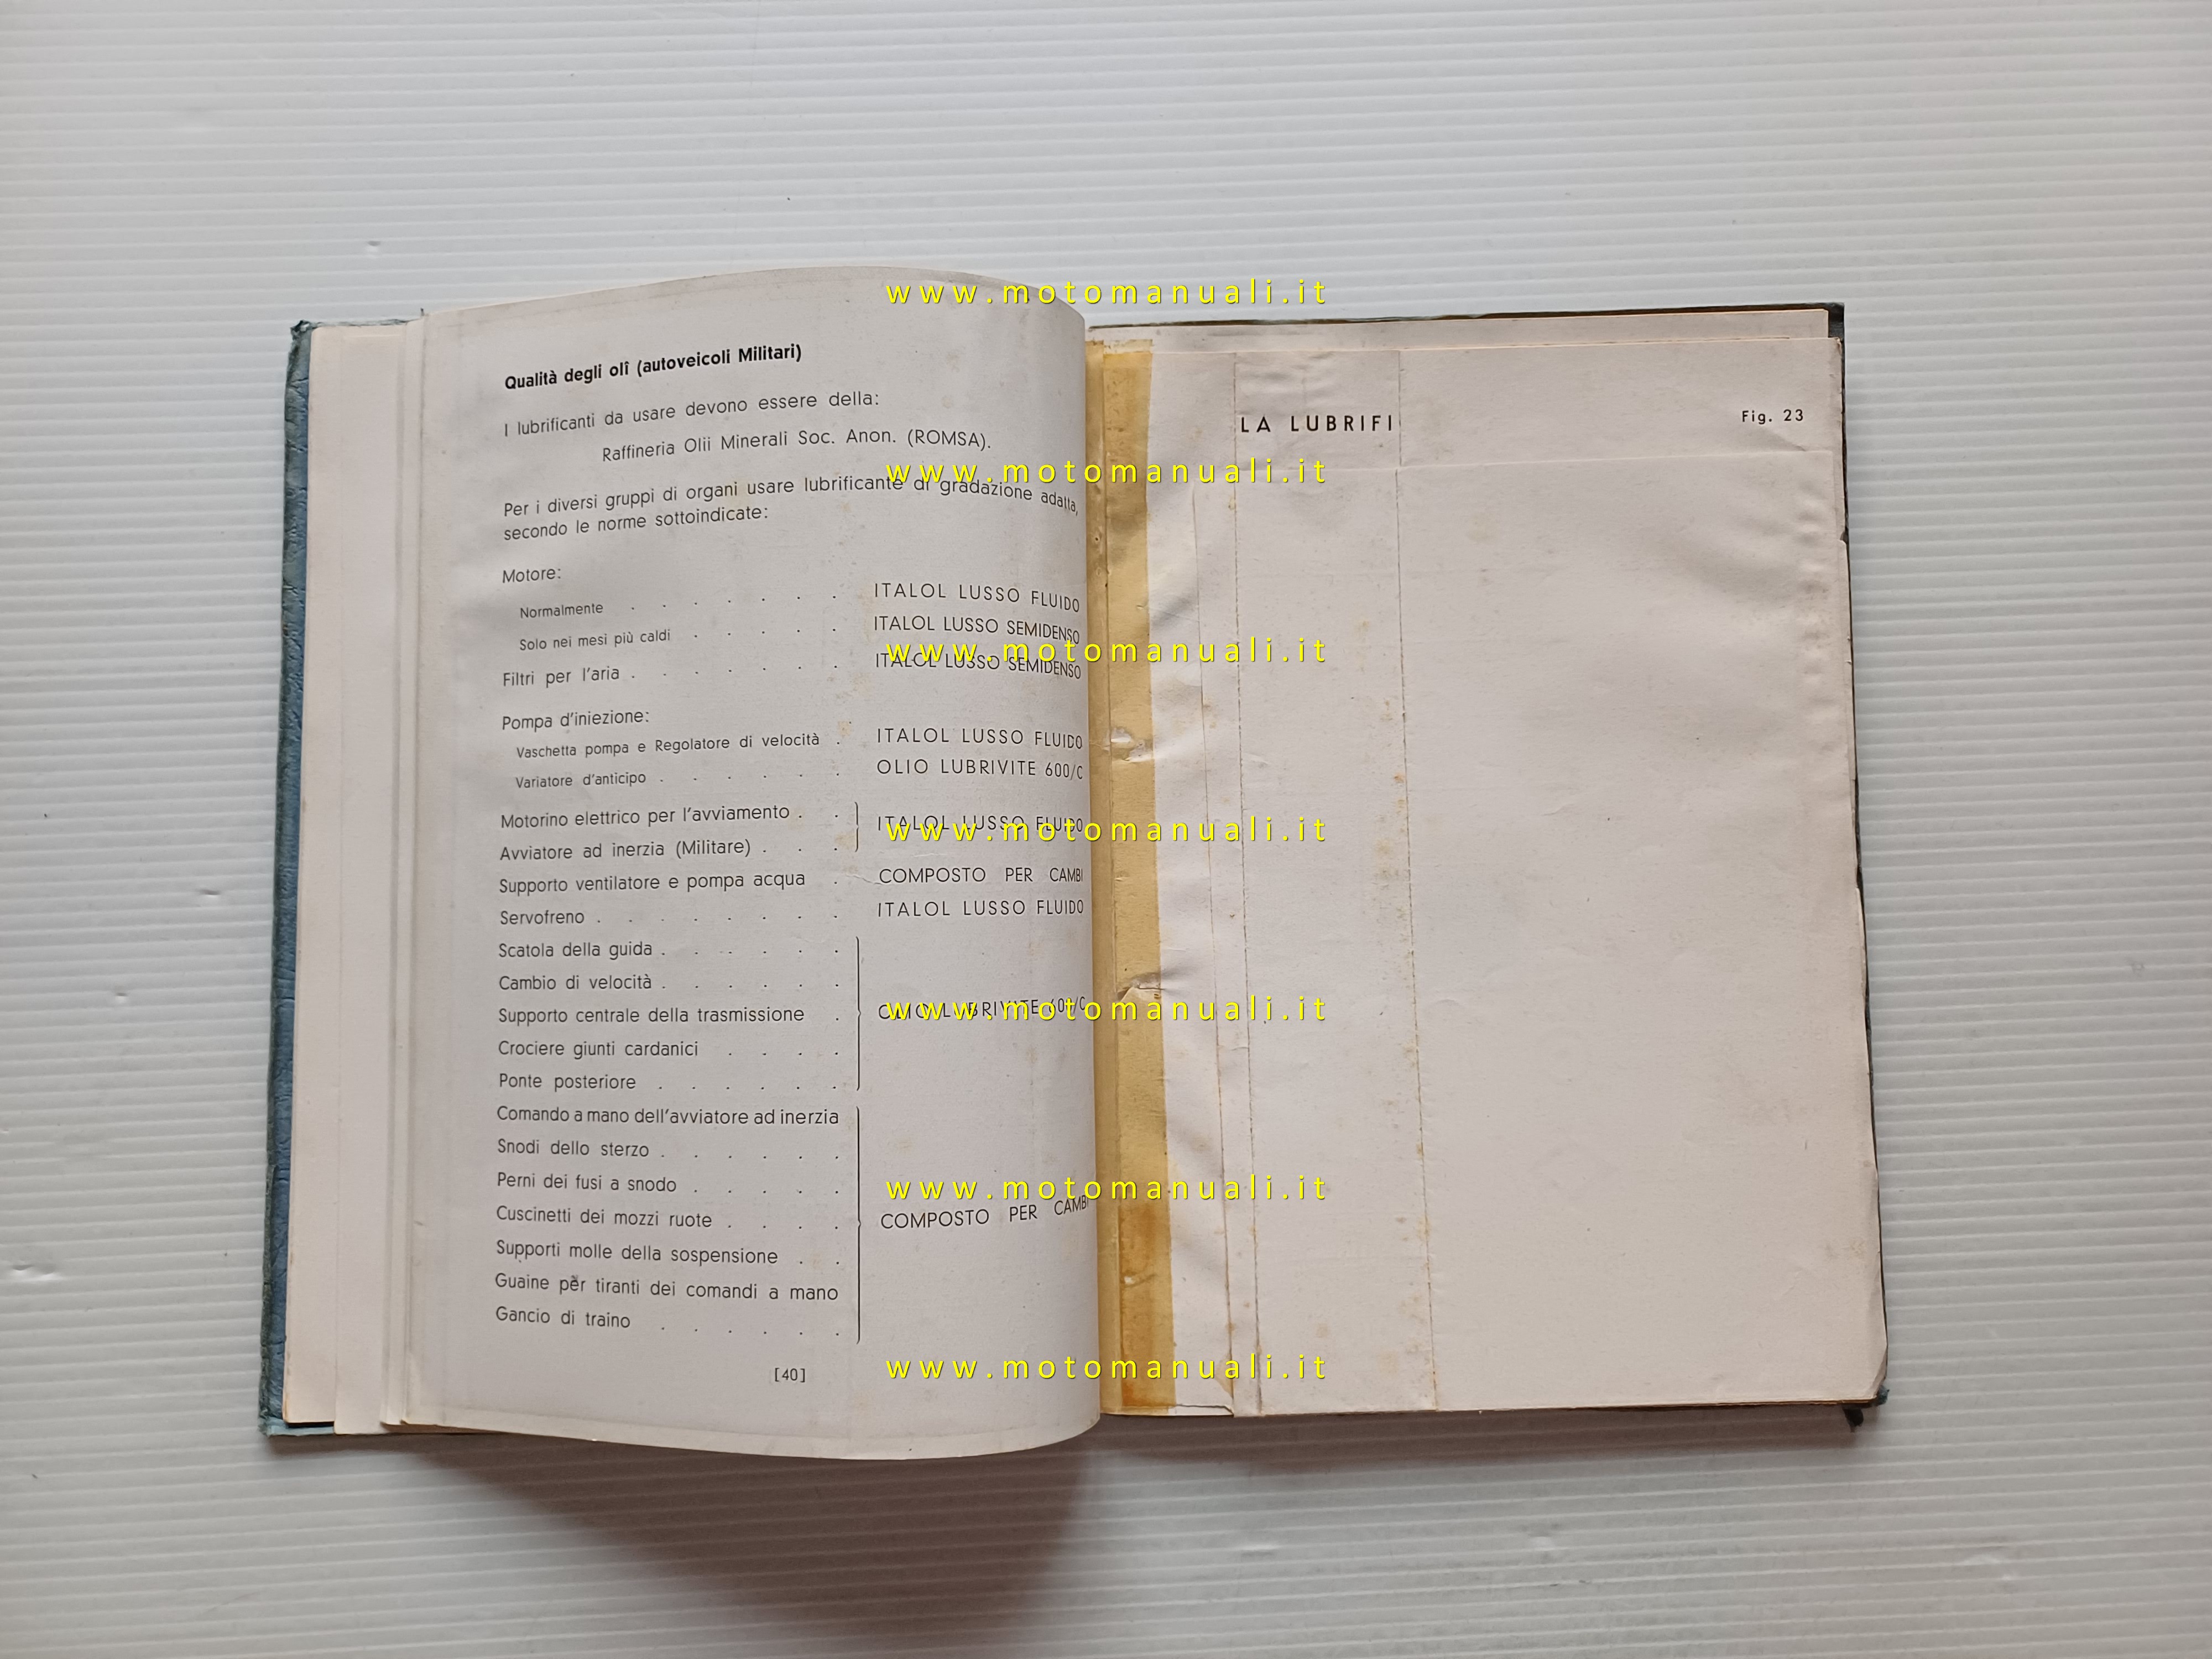 Qualità degli olî (autoveicoli Militari)
I lubrificanti da usare devono essere della:
Raffineria Olii Minerali Soc. Anon. (ROMSA).
Per i diversi gruppi di organi usare lubrificante di gradazione adatta,
secondo le norme sottoindicate:
Motore:
Normalmente . . . . . . . ITALOL LUSSO FLUIDO
Solo nei mesi più caldi . . . . . ITALOL LUSSO SEMIDENSO
Filtri per l'aria . . . . . . . ITALOL LUSSO SEMIDENSO
Pompa d'iniezione:
Vaschetta pompa e Regolatore di velocità . ITALOL LUSSO FLUIDO
Variatore d'anticipo . . . . . . OLIO LUBRIVITE 600/C
Motorino elettrico per l'avviamento . .
ITALOL LUSSO FLUIDO
Avviatore ad inerzia (Militare) . . .
Supporto ventilatore e pompa acqua . COMPOSTO PER CAMBI
Servofreno . . . . . . . . ITALOL LUSSO FLUIDO
Scatola della guida . . . . . .
Cambio di velocità . . . . . .
Supporto centrale della trasmissione . OLIO LUBRIVITE 600/C
Crociere giunti cardanici . . . .
Ponte posteriore . . . . . .
Comando a mano dell'avviatore ad inerzia
Snodi dello sterzo . . . . . .
Perni dei fusi a snodo . . . . .
Cuscinetti dei mozzi ruote . . . . COMPOSTO PER CAMBI
Supporti molle della sospensione . .
Guaine per tiranti dei comandi a mano
Gancio di traino . . . . . .
[40]
LA LUBRIFI
Fig. 23
www.motomanuali.it
www.motomanuali.it
www.motomanuali.it
www.motomanuali.it
www.motomanuali.it
www.motomanuali.it
www.motomanuali.it